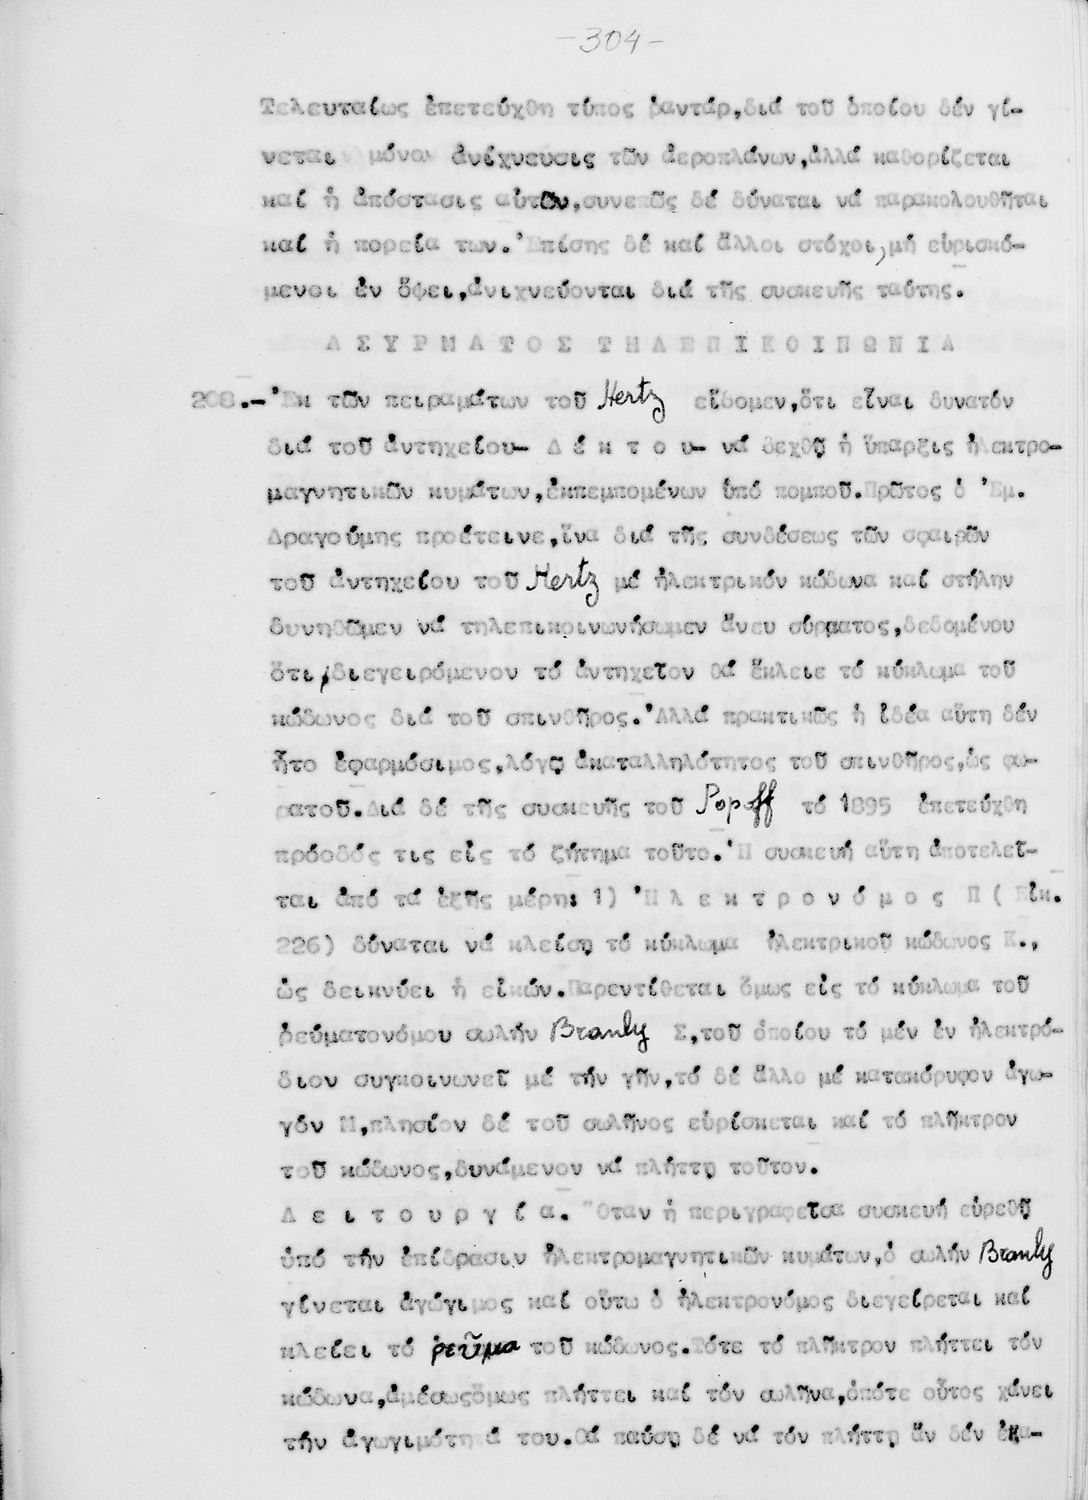 -304-
Τελευταίως ἐπετεύχθη τύπος ῥαντάρ,διά τοῦ ὁποίου δέν γί-
νεται μόνον ἀνίχνευσις τῶν ἀεροπλάνων,ἀλλά καθορίζεται
καί ἡ ἀπόστασις αὐτῶν,συνεπῶς δέ δύναται νά παρακολουθῆται
καί ἡ πορεία των.Ἐπίσης δέ καί ἄλλοι στόχοι,μή εὑρισκό-
μενοι ἐν ὄψει,ἀνιχνεύονται διά τῆς συσκευῆς ταύτης.
Α Σ Υ Ρ Μ Α Τ Ο Σ Τ Η Λ Ε Π Ι Κ Ο Ι Ν Ω Ν Ι Α
208.-Ἐκ τῶν πειραμάτων τοῦ Hertz εἴδομεν,ὅτι εἶναι δυνατόν
διά τοῦ ἀντηχείου- Δ έ κ τ ο υ- νά δεχθῇ ἡ ὕπαρξις ἠλεκτρο-
μαγνητικῶν κυμάτων,ἐκπεμπομένων ὑπό πομποῦ.Πρῶτος ὁ Ἐμ.
Δραγούμης προέτεινε,ἵνα διά τῆς συνδέσεως τῶν σφαιρῶν
τοῦ ἀντηχείου τοῦ Hertz μέ ἠλεκτρικόν κώδωνα καί στήλην
δυνηθῶμεν νά τηλεπικοινωνήσωμεν ἄνευ σύρματος,δεδομένου
ὅτι,διεγειρόμενον τό ἀντηχεῖον θά ἔκλειε τό κύκλωμα τοῦ
κώδωνος διά τοῦ σπινθῆρος.Ἀλλά πρακτικῶς ἡ ἰδέα αὕτη δέν
ἦτο ἐφαρμόσιμος,λόγῳ ἀκαταλληλότητος τοῦ σπινθῆρος,ὡς φω-
ρατοῦ.Διά δέ τῆς συσκευῆς τοῦ Popoff τό 1895 ἐπετεύχθη
πρόοδός τις εἰς τό ζήτημα τοῦτο.Ἡ συσκευή αὕτη ἀποτελεῖ-
ται ἀπό τά ἑξῆς μέρη: 1) Ἠ λ ε κ τ ρ ο ν ό μ ο ς Π ( Εἰκ.
226) δύναται νά κλείσῃ τό κύκλωμα ἠλεκτρικοῦ κώδωνος Κ.,
ὡς δεικνύει ἡ εἰκών.Παρεντίθεται ὅμως εἰς τό κύκλωμα τοῦ
ῥεύματονόμου σωλήν Branly Σ,τοῦ ὁποίου τό μέν ἕν ἠλεκτρό-
διον συγκοινωνεῖ μέ τήν γῆν,τό δέ ἄλλο μέ κατακόρυφον ἀγω-
γόν Μ,πλησίον δέ τοῦ σωλῆνος εὑρίσκεται καί τό πλῆκτρον
τοῦ κώδωνος,δυνάμενον νά πλήττῃ τοῦτον.
Λ ε ι τ ο υ ρ γ ί α. Ὅταν ἡ περιγραφεῖσα συσκευή εὑρεθῇ
ὑπό τήν ἐπίδρασιν ἠλεκτρομαγνητικῶν κυμάτων,ὁ σωλήν Branly
γίνεται ἀγώγιμος καί οὕτω ὁ ἠλεκτρονόμος διεγείρεται καί
κλείει τό ῥεῦμα τοῦ κώδωνος.Τότε τό πλῆκτρον πλήττει τόν
κώδωνα,ἀμέσωςὅμως πλήττει καί τόν σωλῆνα,ὁπότε οὗτος χάνει
τήν ἀγωγιμότητά του.Θά παύσῃ δέ νά τόν πλήττῃ ἄν δέν ἐξα-